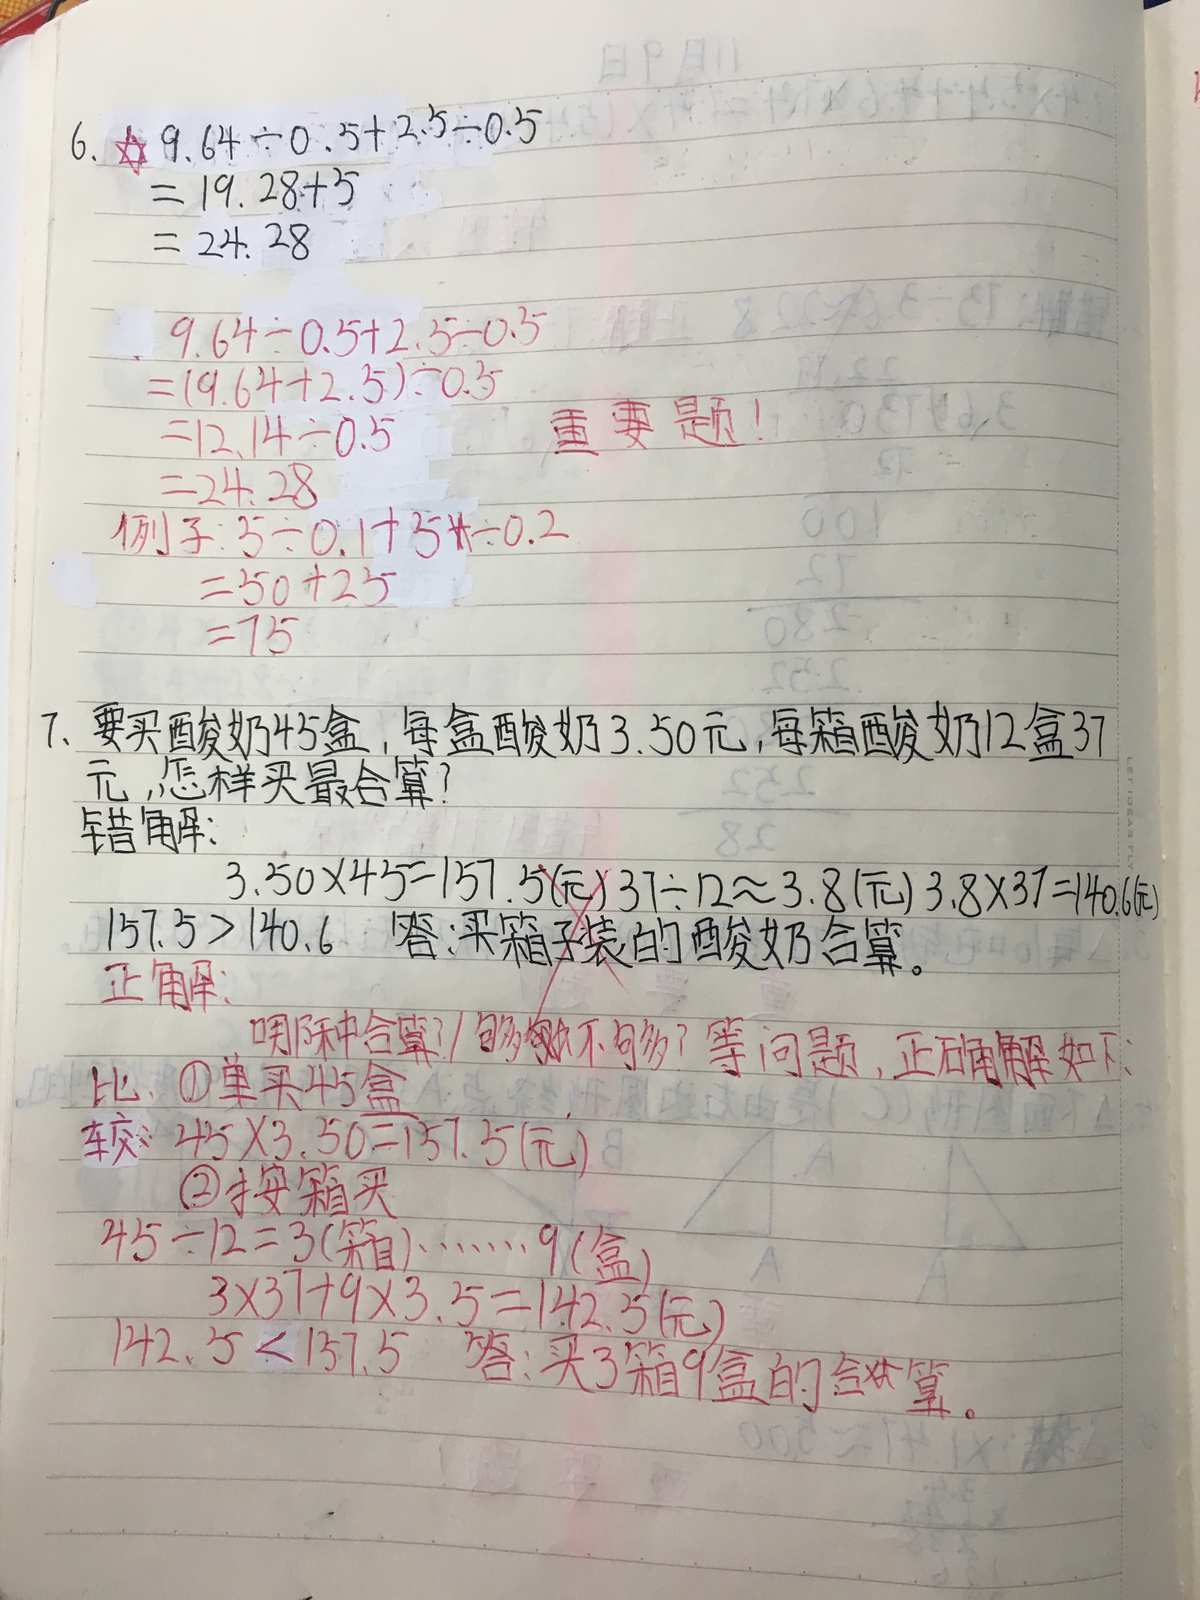 6、☆9.64÷0.5+2.5÷0.5
=19.28+5
=24.28
9.64÷0.5+2.5÷0.5
=(9.64+2.5)÷0.5
=12.14÷0.5
重要题!
=24.28
例子:5÷0.1+5÷0.2
=50+25
=75
7、要买酸奶45盒,每盒酸奶3.50元,每箱酸奶12盒37
元,怎样买最合算?
错解:
3.50×45=157.5(元) 37÷12≈3.8(元) 3.8×37=140.6(元)
157.5>140.6 答:买箱子装的酸奶合算。
正解:
哪种合算?/够不够?等问题,正确解如下:
比 ①单买45盒
较: 45×3.50=157.5(元)
②按箱买
45÷12=3(箱)……9(盒)
3×37+9×3.5=142.5(元)
142.5<157.5 答:买3箱9盒的合算。
LET IDEAS FLY